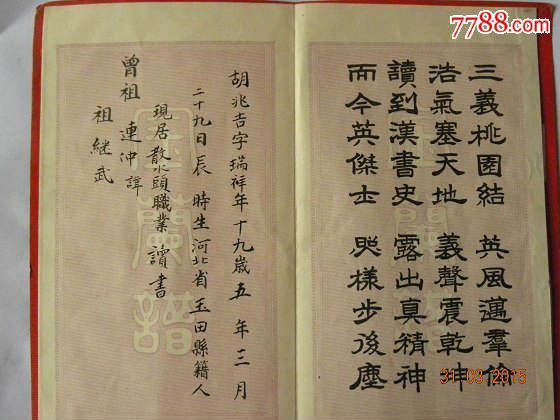 7788.com
三義桃園結 英風邁羣倫
浩氣塞天地 義聲震乾坤
讀到漢書史 露出真精神
而今英傑士 照樣步後塵
胡兆吉字瑞祥年十九歲五年三月
二十九日辰時生河北省玉田縣籍人
現居散水頭職業讀書
曾祖連仲諱
祖繼武
金蘭譜
金蘭譜
31.03.2015